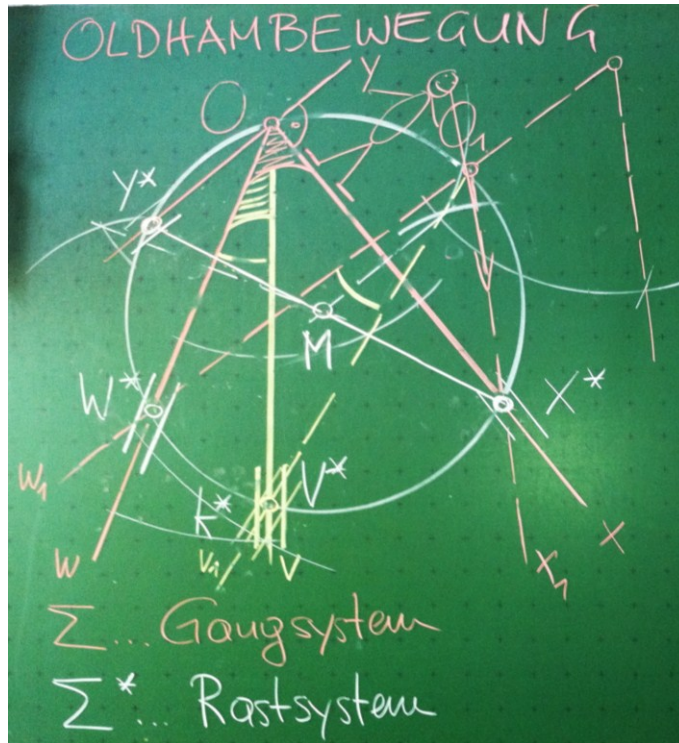 OLDHAMBEWEGUNG
O
Y
O1
Y*
M
W*
X*
W1
k*
V*
W
V1
V
X
X1
Σ ... Gangsystem
Σ* ... Rastsystem